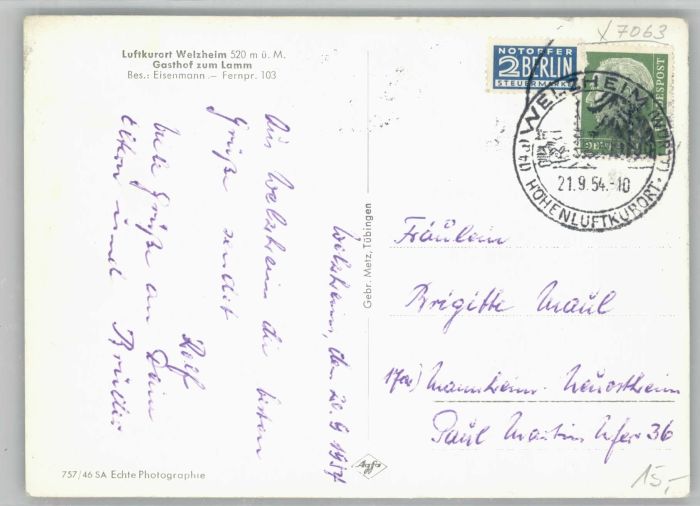 Luftkurort Welzheim 520 m ü. M.
Gasthof zum Lamm
Bes.: Eisenmann — Fernpr. 103
Welzheim, den 20. 9. 1954
Aus Welzheim die besten
Grüße sendet
Rolf
Viele Grüße an Deine
Eltern und Brüder
757/46 SA Echte Photographie
Gebr. Metz, Tübingen
Agfa
X 7063
NOTOPFER
2 BERLIN
STEUERMARKE
BUNDESPOST
(14a) WELZHEIM (WÜRTT)
21.9.54.-10
HÖHENLUFTKURORT
Fräulein
Brigitte Maul
17a) Mannheim-Neuostheim
Paul Martin Ufer 36
15,-